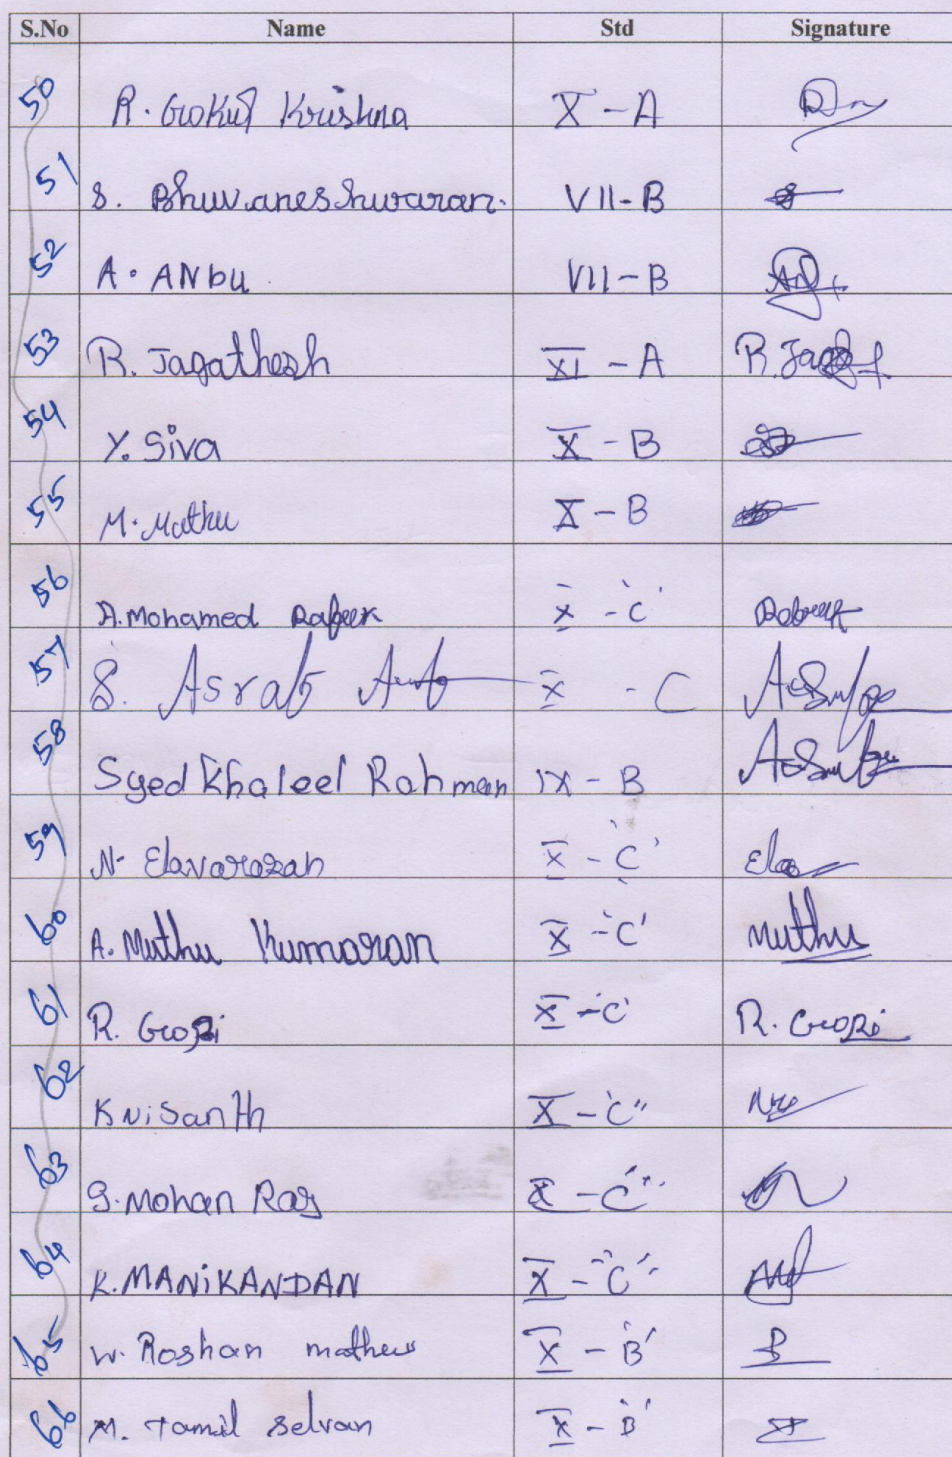 S.No Name Std Signature
50 R. Gokul Krishna X - A
51 S. Bhuvaneshwaran. VII - B
52 A. ANbu VII - B
53 R. Jagathesh XI - A R. Jag
54 Y. Siva X - B
55 M. Muthu X - B
56 A. Mohamed Rafeek X - 'C'
57 S. Asrab X - C
58 Syed Khaleel Rahman IX - B
59 N. Elavarasan X - 'C' Ela
60 A. Muthu Kumaran X - 'C' Muthu
61 R. Gopi X - 'C' R. Gopi
62 K Nisanth X - 'C"
63 G. Mohan Raj X - 'C"
64 K. MANiKANDAN X - "C"
65 W. Roshan mathew X - 'B'
66 M. Tamil Selvan X - 'B'